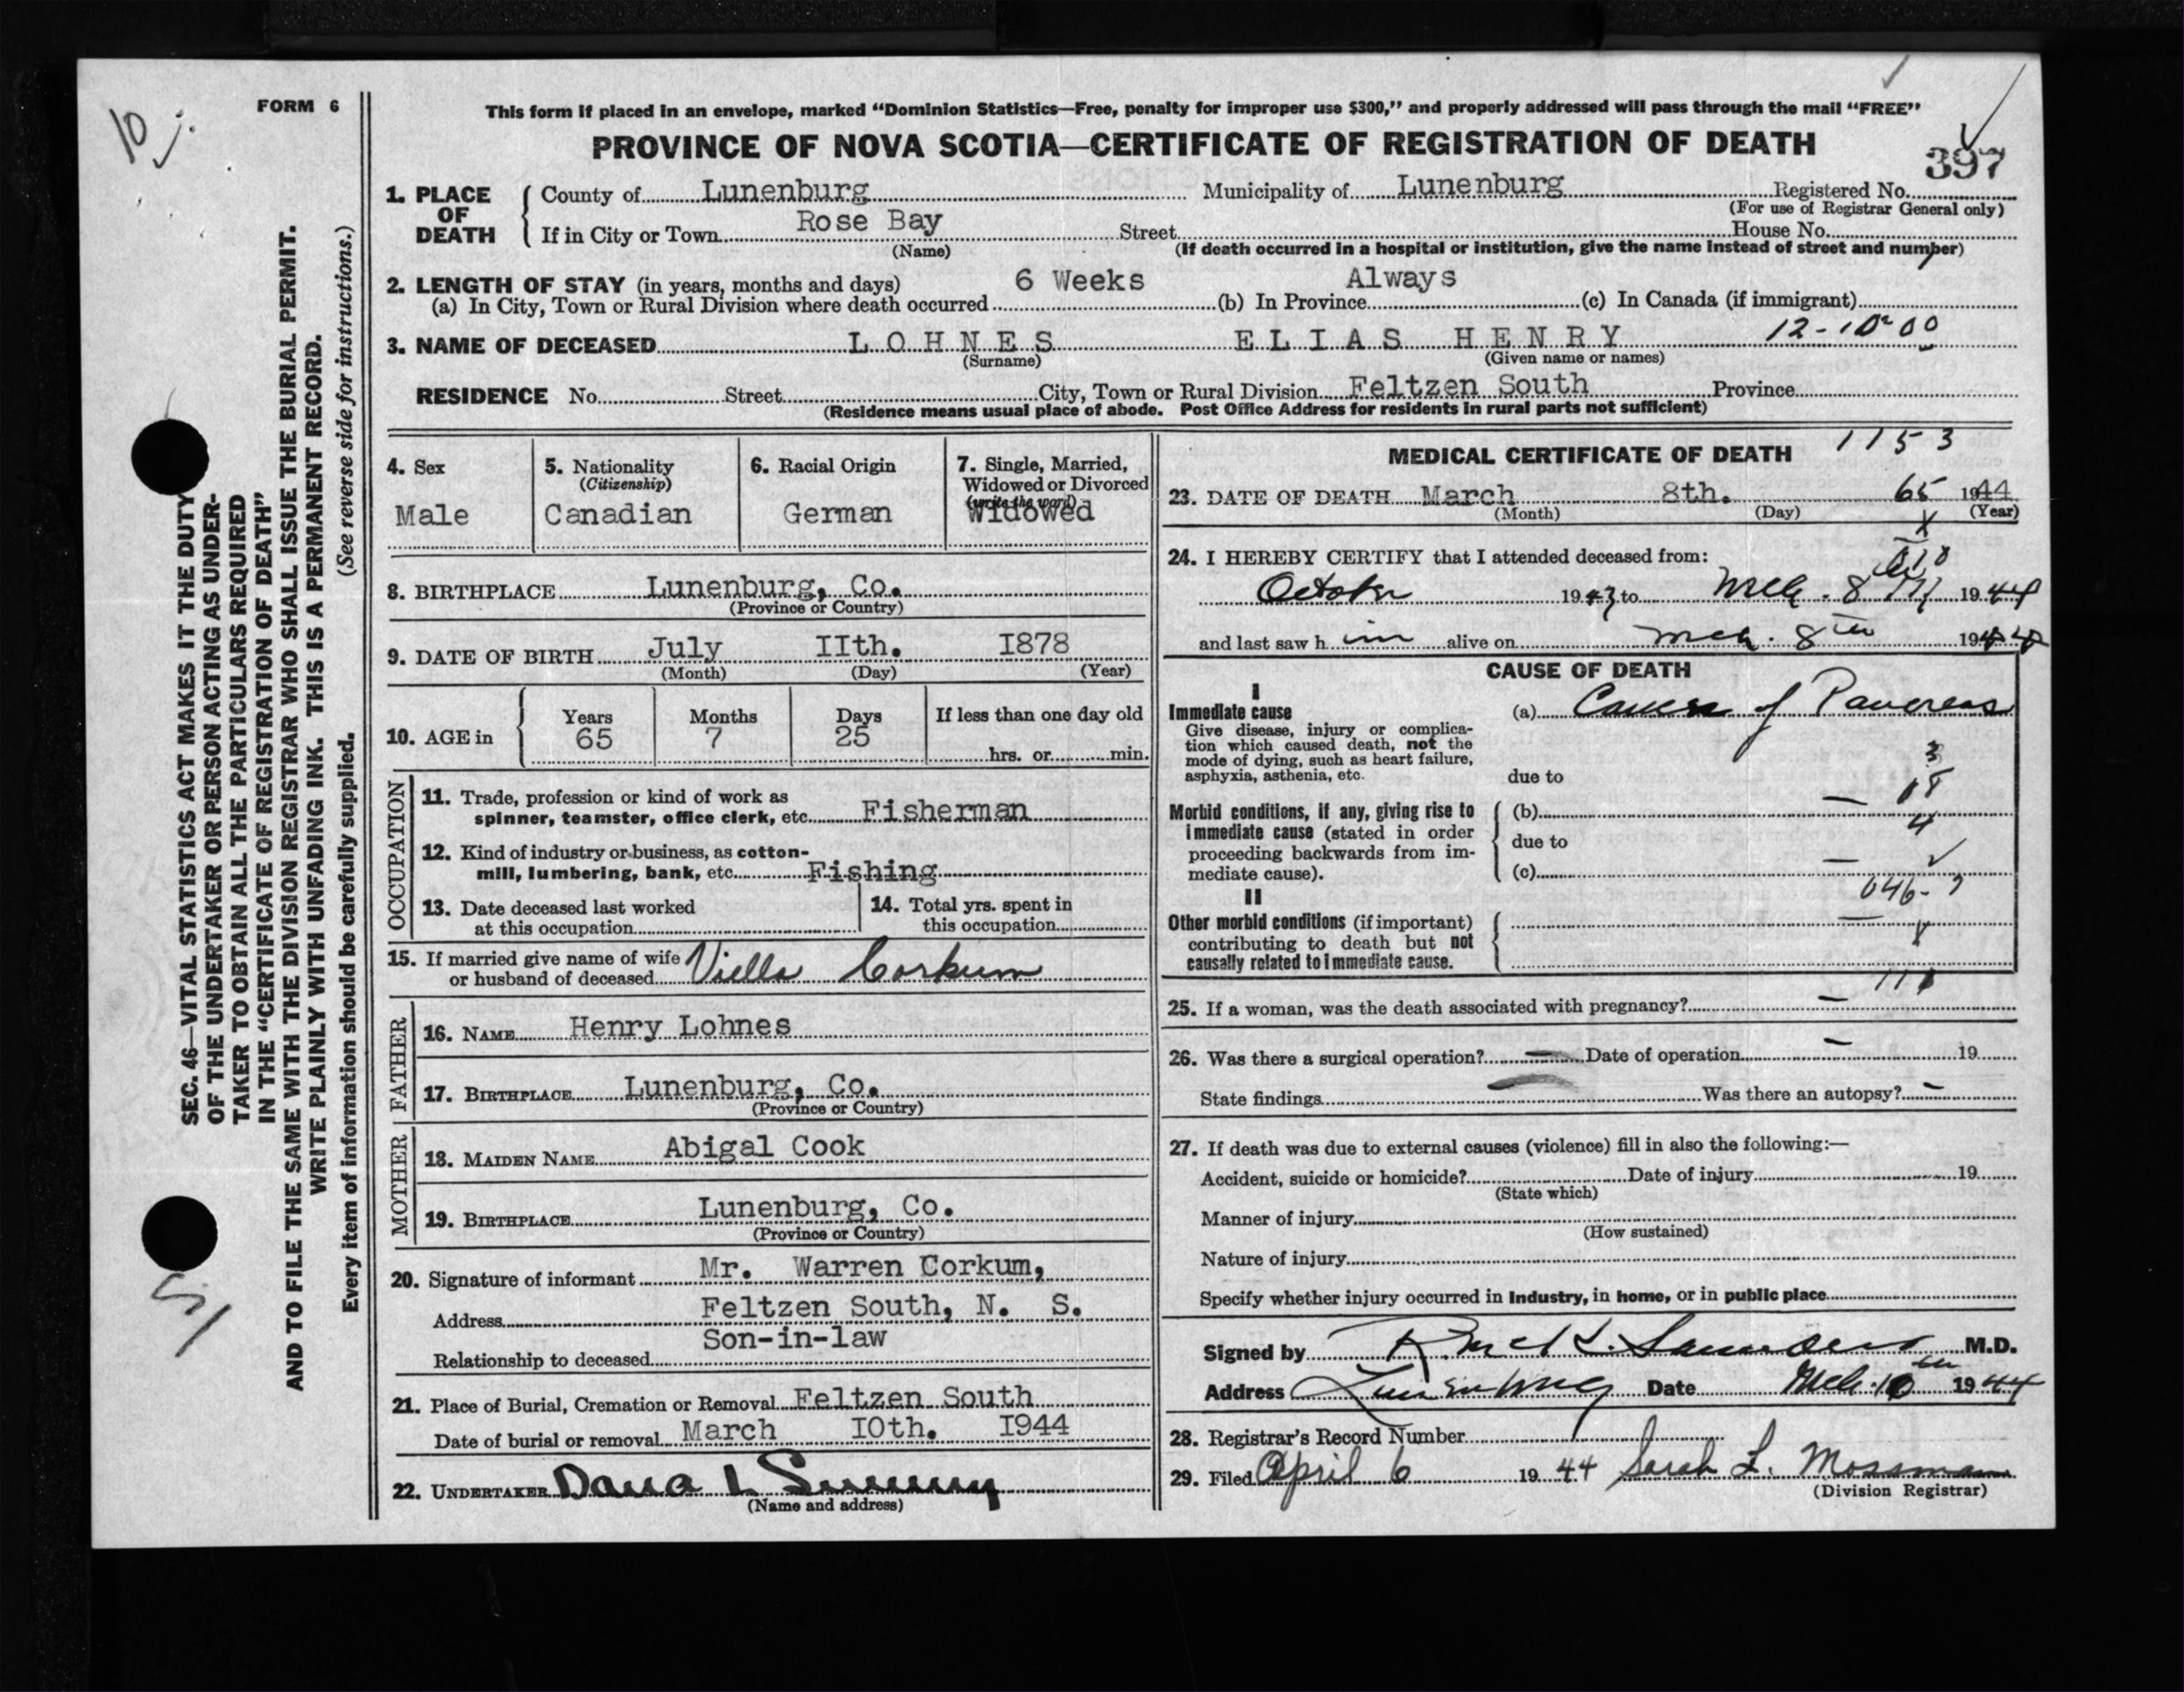 10
FORM 6
This form if placed in an envelope, marked “Dominion Statistics—Free, penalty for improper use $300,” and properly addressed will pass through the mail “FREE”
PROVINCE OF NOVA SCOTIA—CERTIFICATE OF REGISTRATION OF DEATH
397
1. PLACE OF DEATH
County of Lunenburg Municipality of Lunenburg Registered No.
(For use of Registrar General only)
If in City or Town Rose Bay Street House No.
(Name) (If death occurred in a hospital or institution, give the name instead of street and number)
2. LENGTH OF STAY (in years, months and days) 6 Weeks Always
(a) In City, Town or Rural Division where death occurred (b) In Province (c) In Canada (if immigrant)
3. NAME OF DECEASED LOHNES ELIAS HENRY
(Surname) (Given name or names)
RESIDENCE No. Street City, Town or Rural Division Feltzen South Province
(Residence means usual place of abode. Post Office Address for residents in rural parts not sufficient)
4. Sex
Male
5. Nationality
(Citizenship)
Canadian
6. Racial Origin
German
7. Single, Married,
Widowed or Divorced
(write the word)
Widowed
8. BIRTHPLACE Lunenburg, Co.
(Province or Country)
9. DATE OF BIRTH July IIth. I878
(Month) (Day) (Year)
10. AGE in
Years Months Days If less than one day old
65 7 25
hrs. or min.
OCCUPATION
11. Trade, profession or kind of work as
spinner, teamster, office clerk, etc. Fisherman
12. Kind of industry or business, as cotton-
mill, lumbering, bank, etc. Fishing
13. Date deceased last worked
at this occupation
14. Total yrs. spent in
this occupation
15. If married give name of wife
or husband of deceased Viella Corkum
FATHER
16. NAME Henry Lohnes
17. BIRTHPLACE Lunenburg, Co.
(Province or Country)
MOTHER
18. MAIDEN NAME Abigal Cook
19. BIRTHPLACE Lunenburg, Co.
(Province or Country)
20. Signature of informant Mr. Warren Corkum,
Address Feltzen South, N. S.
Relationship to deceased Son-in-law
21. Place of Burial, Cremation or Removal Feltzen South
Date of burial or removal March IOth. I944
22. UNDERTAKER Dana L Sweeny
(Name and address)
MEDICAL CERTIFICATE OF DEATH 1153
23. DATE OF DEATH March 8th. 65 1944
(Month) (Day) (Year)
24. I HEREBY CERTIFY that I attended deceased from:
October 1943 to Mch. 8 1944
and last saw h im alive on Mch. 8th 1944
CAUSE OF DEATH
I
Immediate cause
Give disease, injury or complica-
tion which caused death, not the
mode of dying, such as heart failure,
asphyxia, asthenia, etc.
(a) Cancer of Pancreas
due to
Morbid conditions, if any, giving rise to
immediate cause (stated in order
proceeding backwards from im-
mediate cause).
(b)
due to
(c)
II
Other morbid conditions (if important)
contributing to death but not
causally related to immediate cause.
25. If a woman, was the death associated with pregnancy? —
26. Was there a surgical operation? — Date of operation — 19
State findings — Was there an autopsy? —
27. If death was due to external causes (violence) fill in also the following:—
Accident, suicide or homicide? Date of injury 19
(State which)
Manner of injury
(How sustained)
Nature of injury
Specify whether injury occurred in Industry, in home, or in public place
Signed by R. McK. Saunders M.D.
Address Lunenburg Date Mch. 10th 1944
28. Registrar's Record Number
29. Filed April 6 1944 Sarah L. Mossman
(Division Registrar)
SEC. 46—VITAL STATISTICS ACT MAKES IT THE DUTY
OF THE UNDERTAKER OR PERSON ACTING AS UNDER-
TAKER TO OBTAIN ALL THE PARTICULARS REQUIRED
IN THE “CERTIFICATE OF REGISTRATION OF DEATH”
AND TO FILE THE SAME WITH THE DIVISION REGISTRAR WHO SHALL ISSUE THE BURIAL PERMIT.
WRITE PLAINLY WITH UNFADING INK. THIS IS A PERMANENT RECORD.
Every item of information should be carefully supplied. (See reverse side for instructions.)